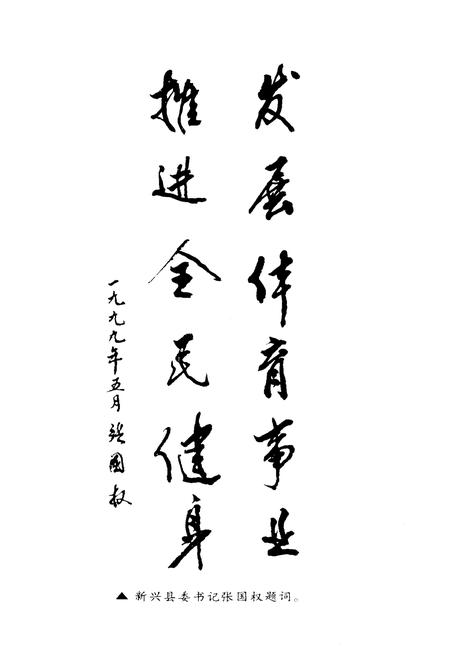 发展体育事业
推进全民健身
一九九九年五月 张国权
▲ 新兴县委书记张国权题词。